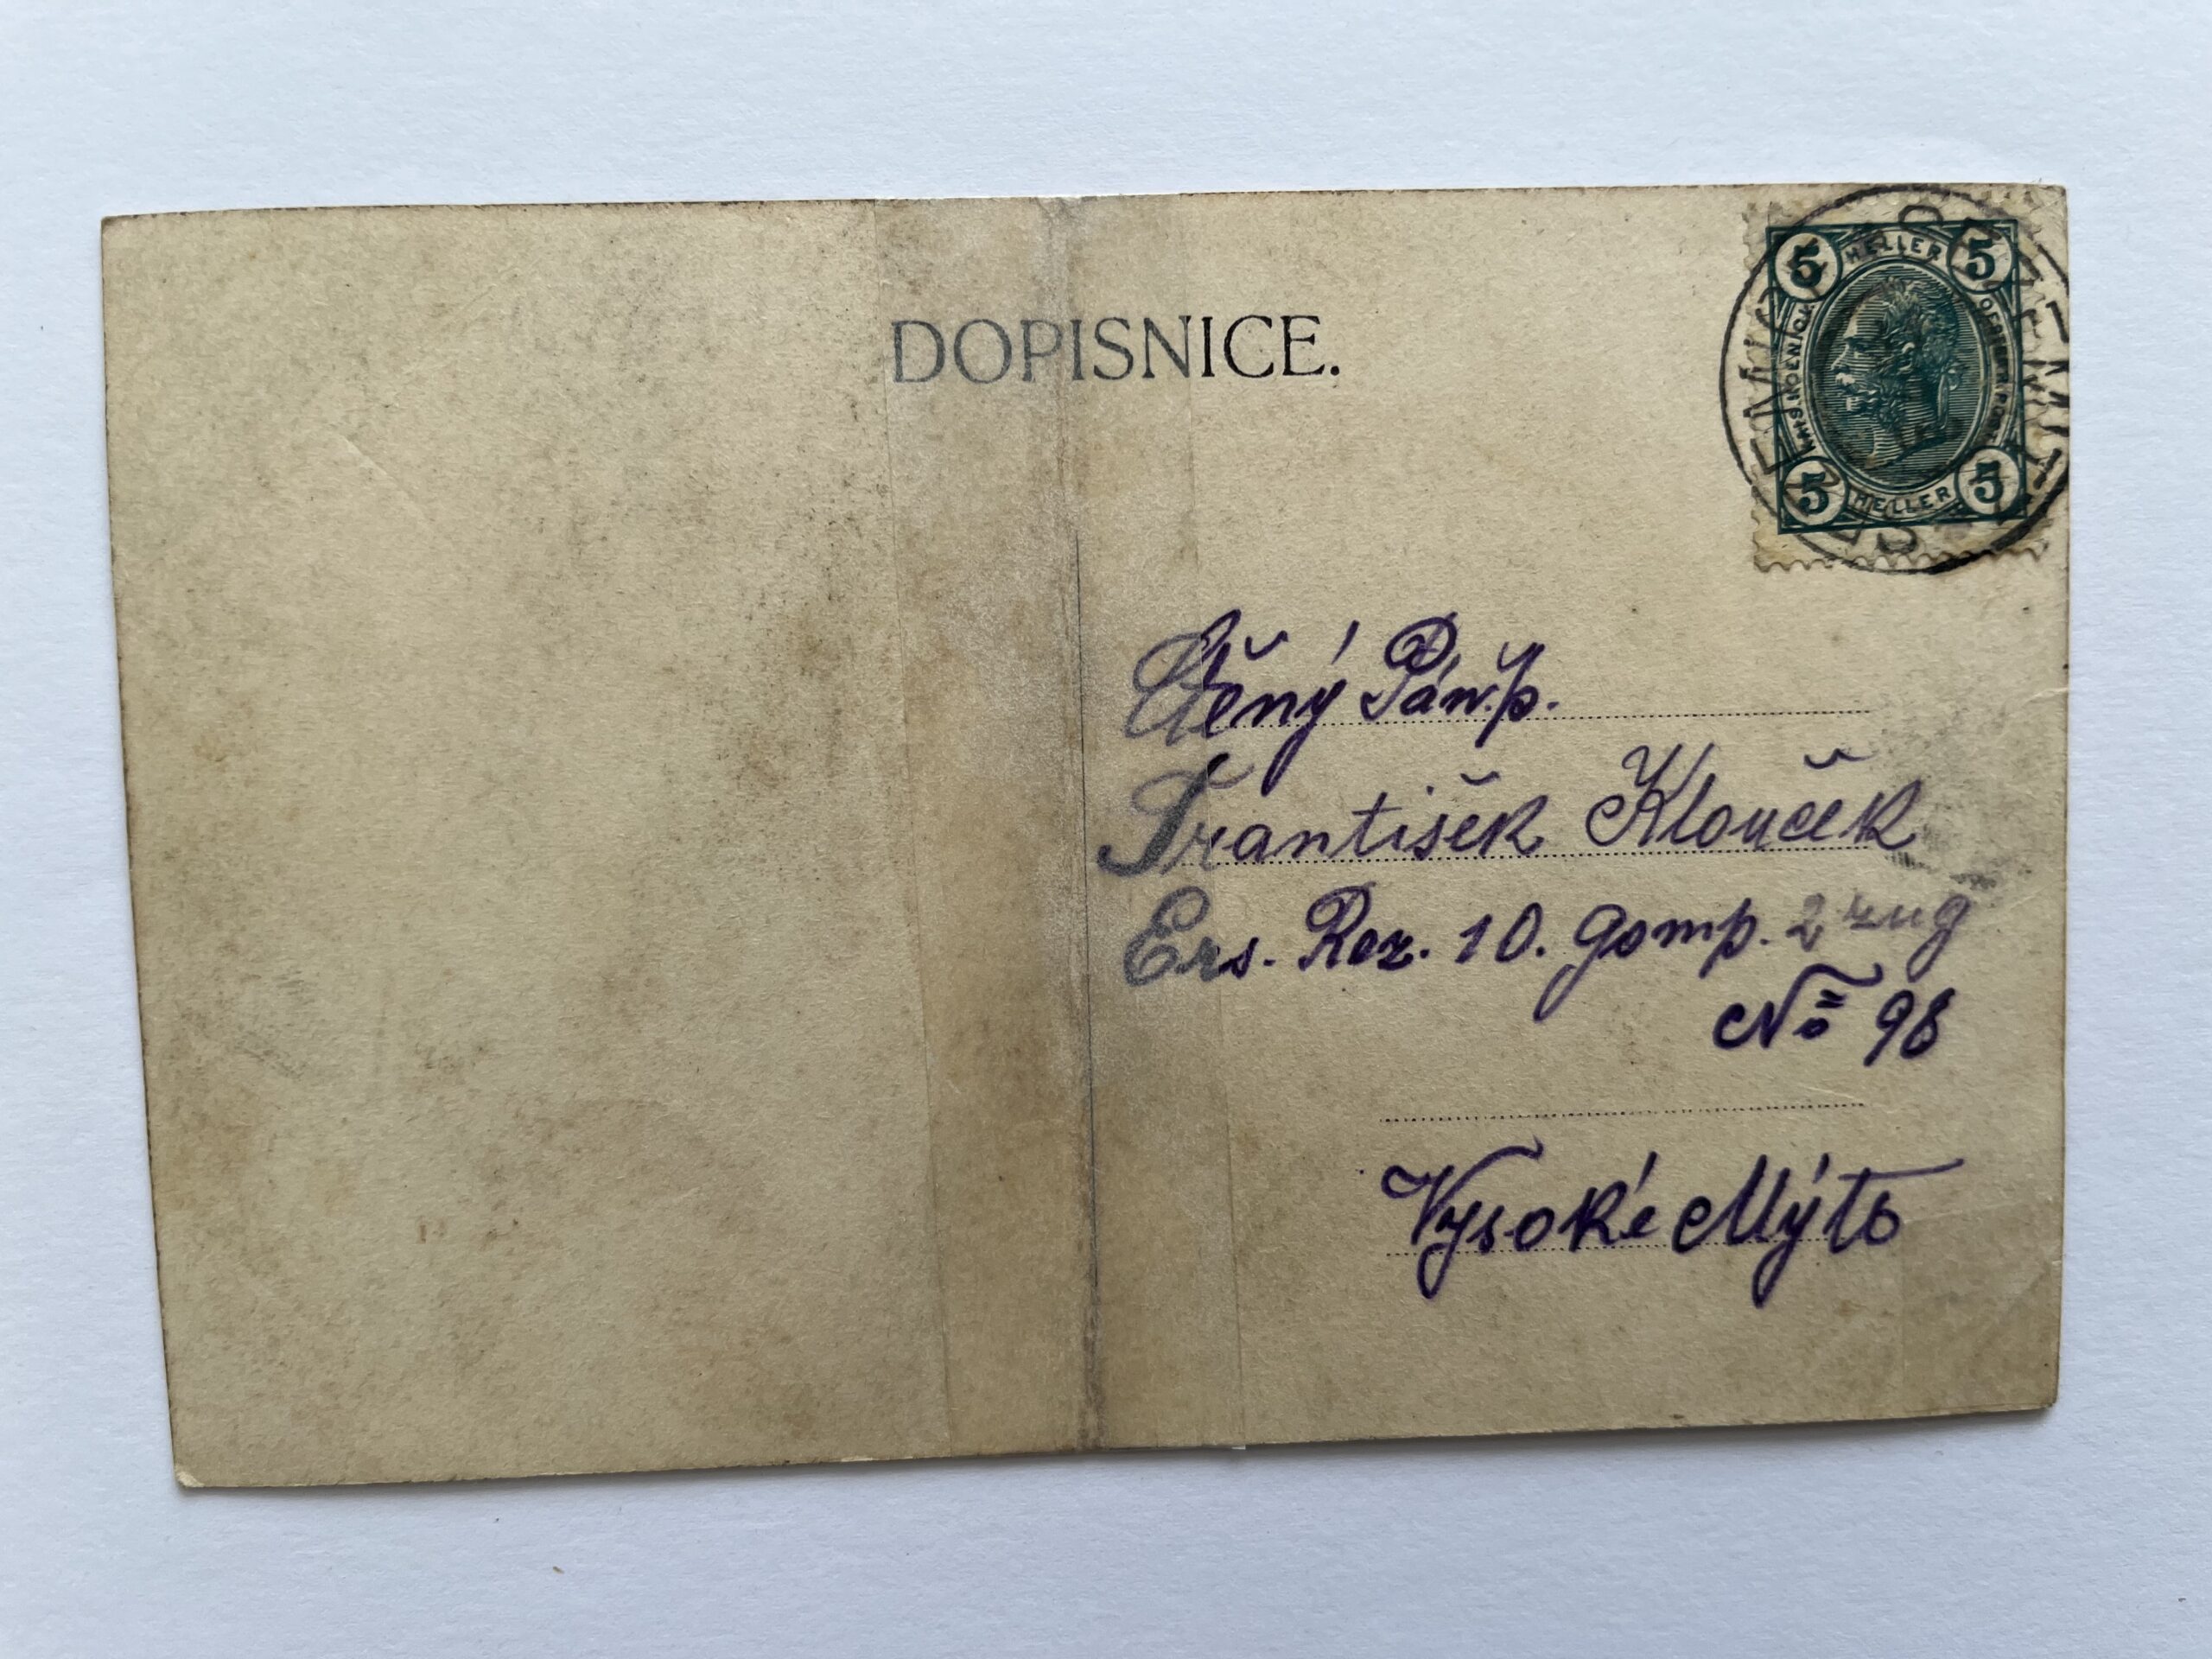 DOPISNICE.
5 HELLER 5
KAIS. KOENIGL. OESTERR. POST
5 HELLER 5
Ctěný Pán. p.
František Klouček
Ers. Rez. 10. Gomp. 2 zug
No 98
Vysoké Mýto